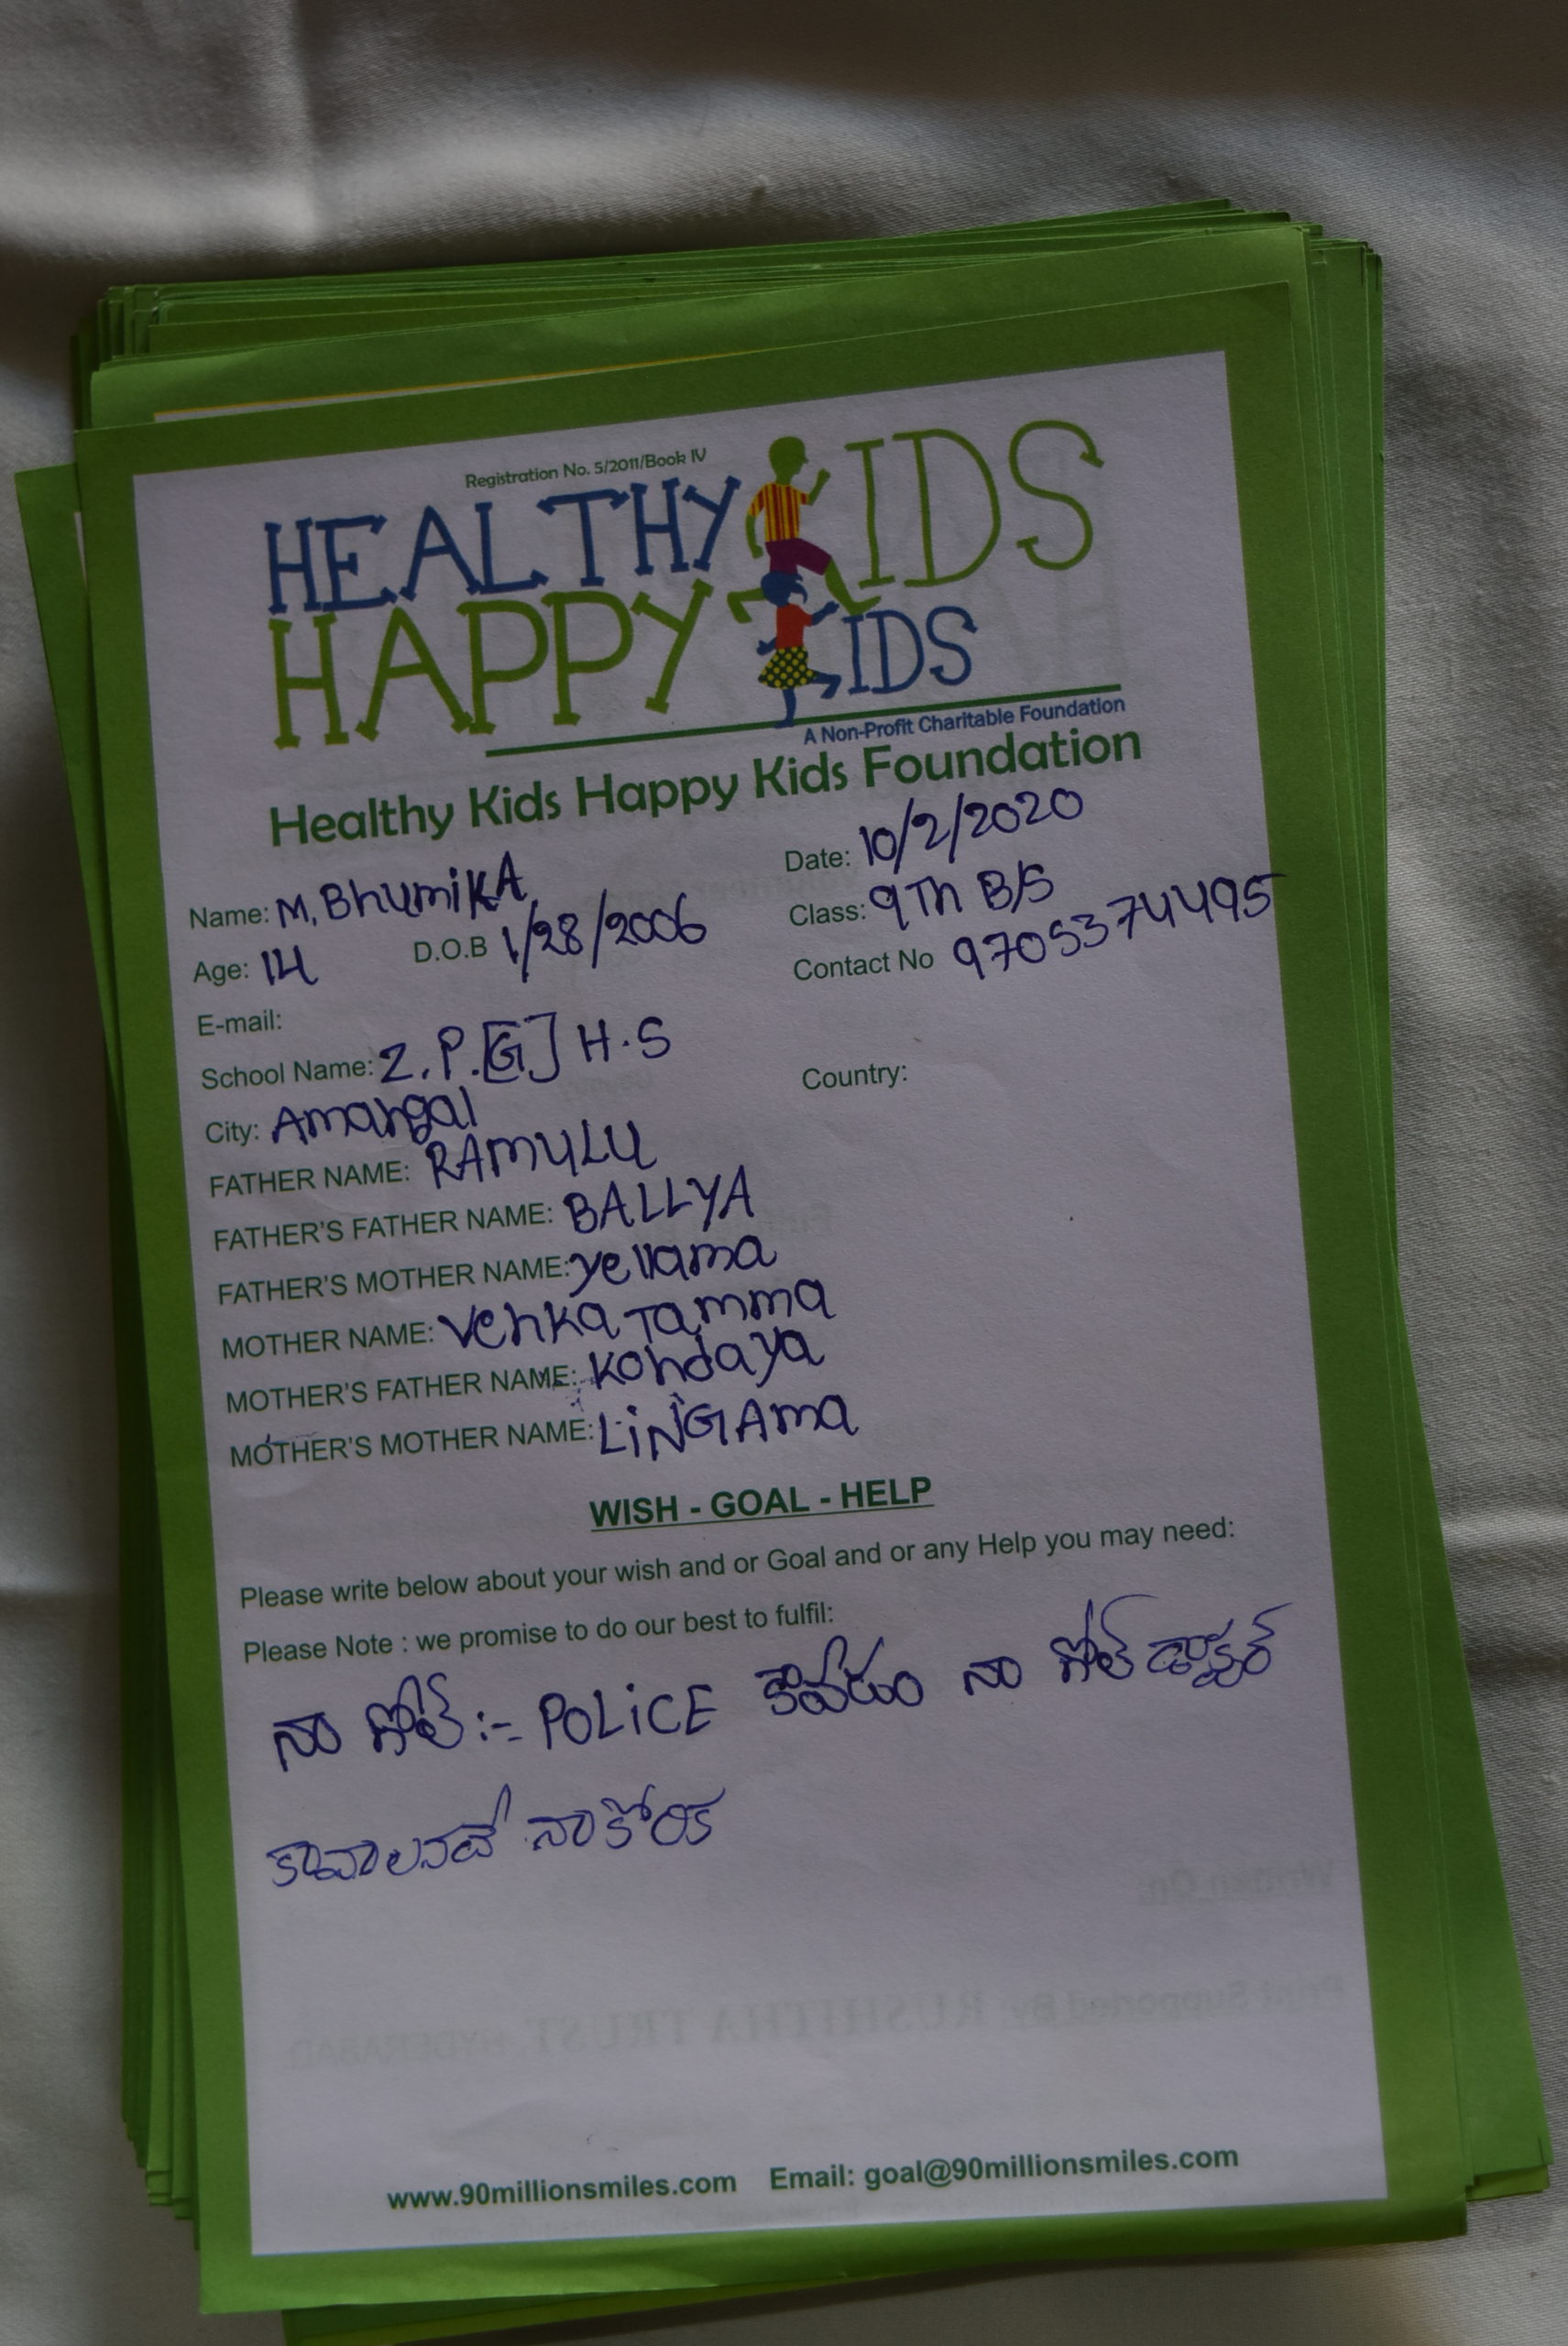 Registration No. 5/2011/Book IV
HEALTHY KIDS
HAPPY KIDS
A Non-Profit Charitable Foundation
Healthy Kids Happy Kids Foundation
Name: M. BhumiKA Date: 10/2/2020
Age: 14 D.O.B 1/28/2006 Class: 9Th B/S
E-mail: Contact No 9705374495
School Name: Z.P.[G] H.S
City: Amangal Country:
FATHER NAME: RAMULU
FATHER'S FATHER NAME: BALLYA
FATHER'S MOTHER NAME: yellama
MOTHER NAME: VenkaTamma
MOTHER'S FATHER NAME: Kondaya
MOTHER'S MOTHER NAME: LiNGAma
WISH - GOAL - HELP
Please write below about your wish and or Goal and or any Help you may need:
Please Note : we promise to do our best to fulfil:
నా గోల్ :- POLiCE కావడం నా గోల్ డాక్టర్
కావాలనదే నా కోరిక
www.90millionsmiles.com Email: goal@90millionsmiles.com